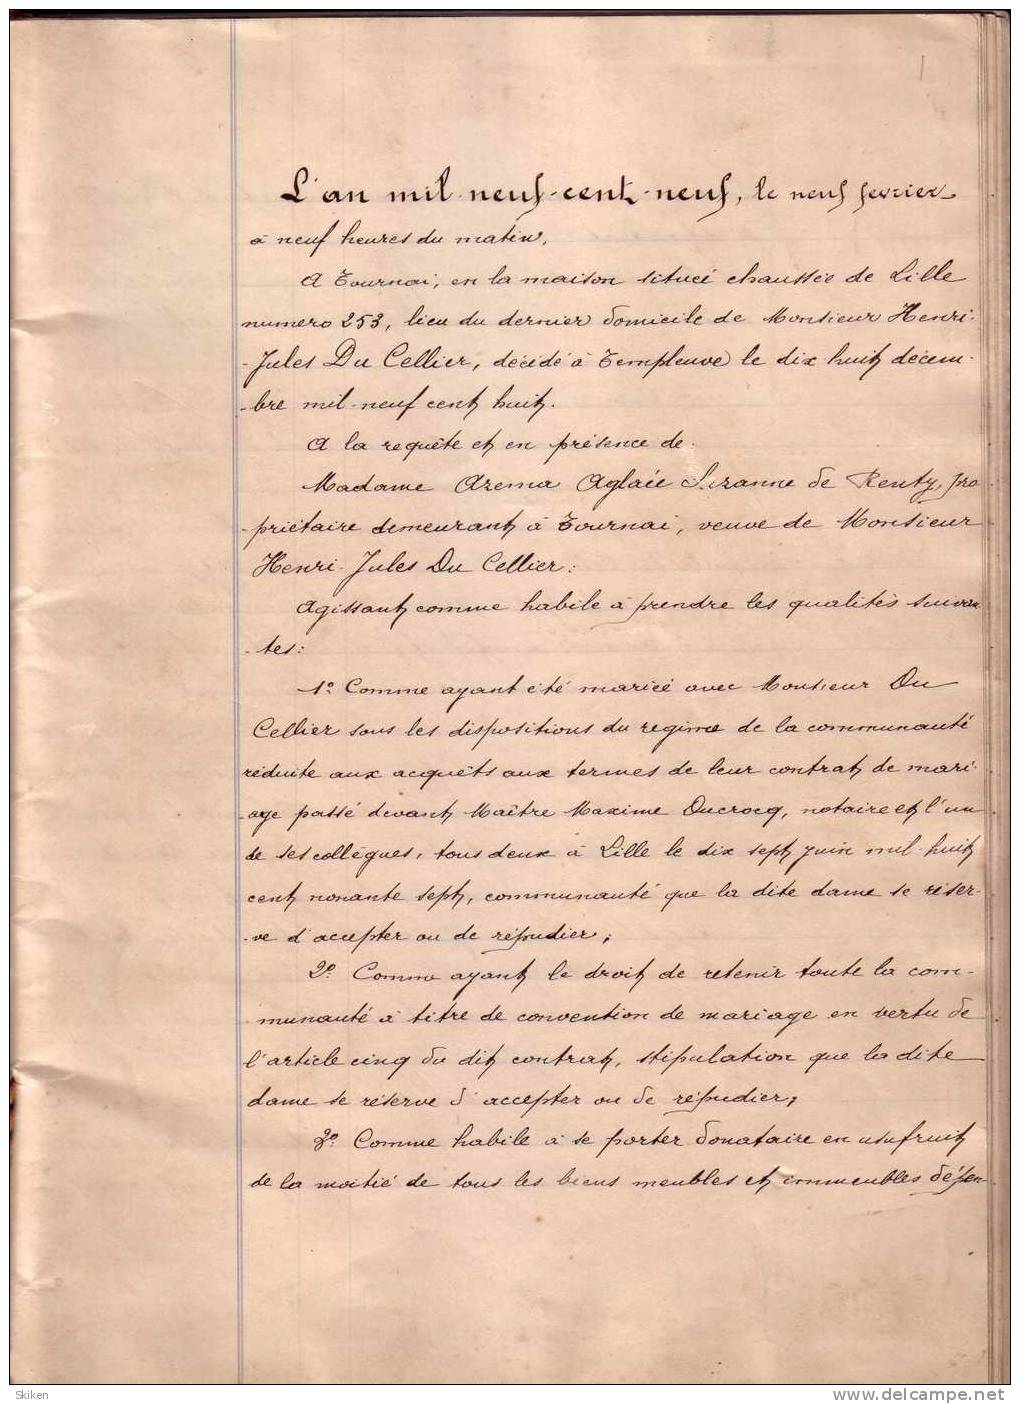 L'an mil-neuf-cent-neuf, le neuf fevrier
à neuf heures du matin,
A Tournai, en la maison situeé chaussée de Lille
numero 253, lieu du dernier domicile de Monsieur Henri-
-Jules Du Cellier, décédé à Templeuve le dix huit décem-
-bre mil-neuf cent huit.
A la requête et en présence de:
Madame Azema Aglaée Suzanne de Rentz, pro
-priétaire demeurant à Tournai, veuve de Monsieur
Henri-Jules Du Cellier:
Agissant comme habile à prendre les qualités suivan
-tes:
1º Comme ayant été marieé avec Monsieur Du
Cellier sous les dispositions du regime de la communauté
réduite aux acquêts aux termes de leur contrat de mari-
-age passé devant Maître Maxime Ducrocq, notaire et l'un
de ses collègues, tous deux à Lille le dix sept juin mil-huit
cent nonante sept, communauté que la dite dame se réser-
-ve d'accepter ou de répudier;
2º. Comme ayant le droit de retenir toute la com-
munauté à titre de convention de mariage en vertu de
l'article cinq du dit contrat, stipulation que la dite
dame se réserve d'accepter ou de répudier;
3º. Comme habile à se porter donataire en usufruit
de la moitié de tous les biens meubles et immeubles dépen-
Skiken
www.delcampe.net